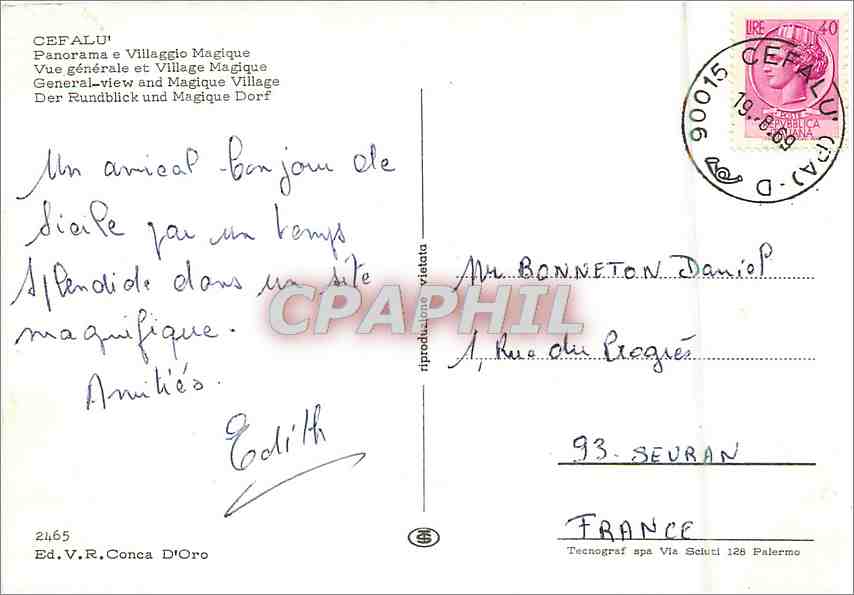 CEFALU'
Panorama e Villaggio Magique
Vue générale et Village Magique
General-view and Magique Village
Der Rundblick und Magique Dorf
Un amical bonjour de
Sicile par un temps
splendide dans un site
magnifique.
Amitiés.
Edith
2465
Ed.V.R.Conca D'Oro
riproduzione vietata
LIRE 40
POSTE
REPVBBLICA
ITALIANA
90015 CEFALU' (PA) - D
19.-8.69
CPAPHIL
Mr BONNETON Daniel
1, Rue du Progrés
93. SEVRAN
FRANCE
Tecnograf spa Via Sciuti 128 Palermo